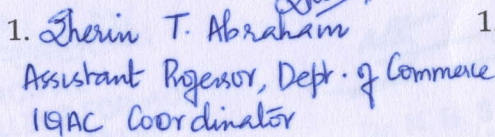 1. Sherin T. Abraham 1
Assistant Professor, Dept. of Commerce
IQAC Coordinator